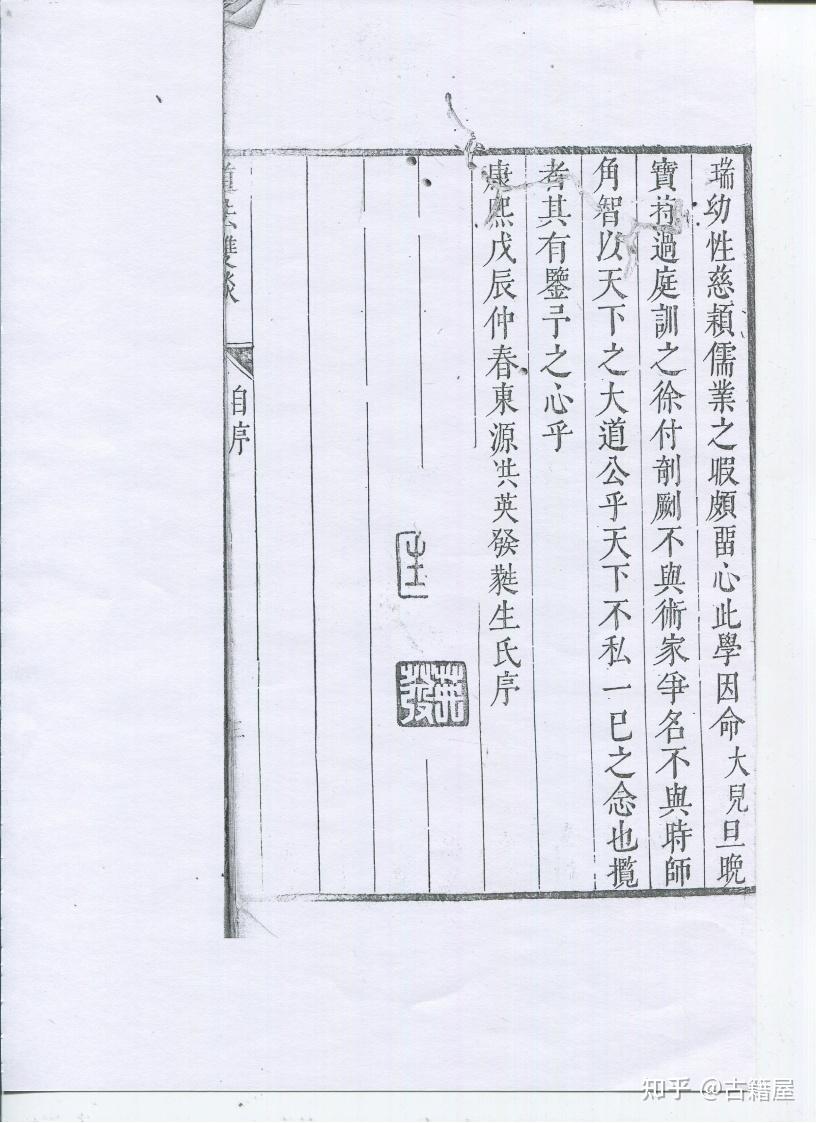 瑞幼性慈穎儒業之暇頗畱心此學因命大兒旦晩
寶持過庭訓之徐付剞劂不與術家爭名不與時師
角智以天下之大道公乎天下不私一已之念也攬
者其有鑒予之心乎
康熙戊辰仲春東源洪英發㽔生氏序
英發
雙談
自序
知乎 @古籍屋